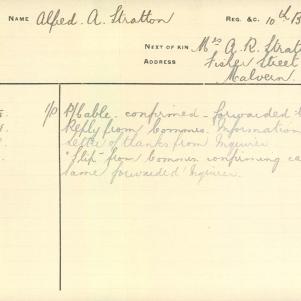 NAME Alfred. A. Stratton REG. &C. 10th B
NEXT OF KIN Mrs A. R. Stratt
ADDRESS Fisher Street
Malvern.
1/P P/Cable. confirmed - forwarded t
Reply from Commrs. Information
Letter of thanks from Inquirer
"Slip" from Commrs confirming ca
same forwarded Inquirer.